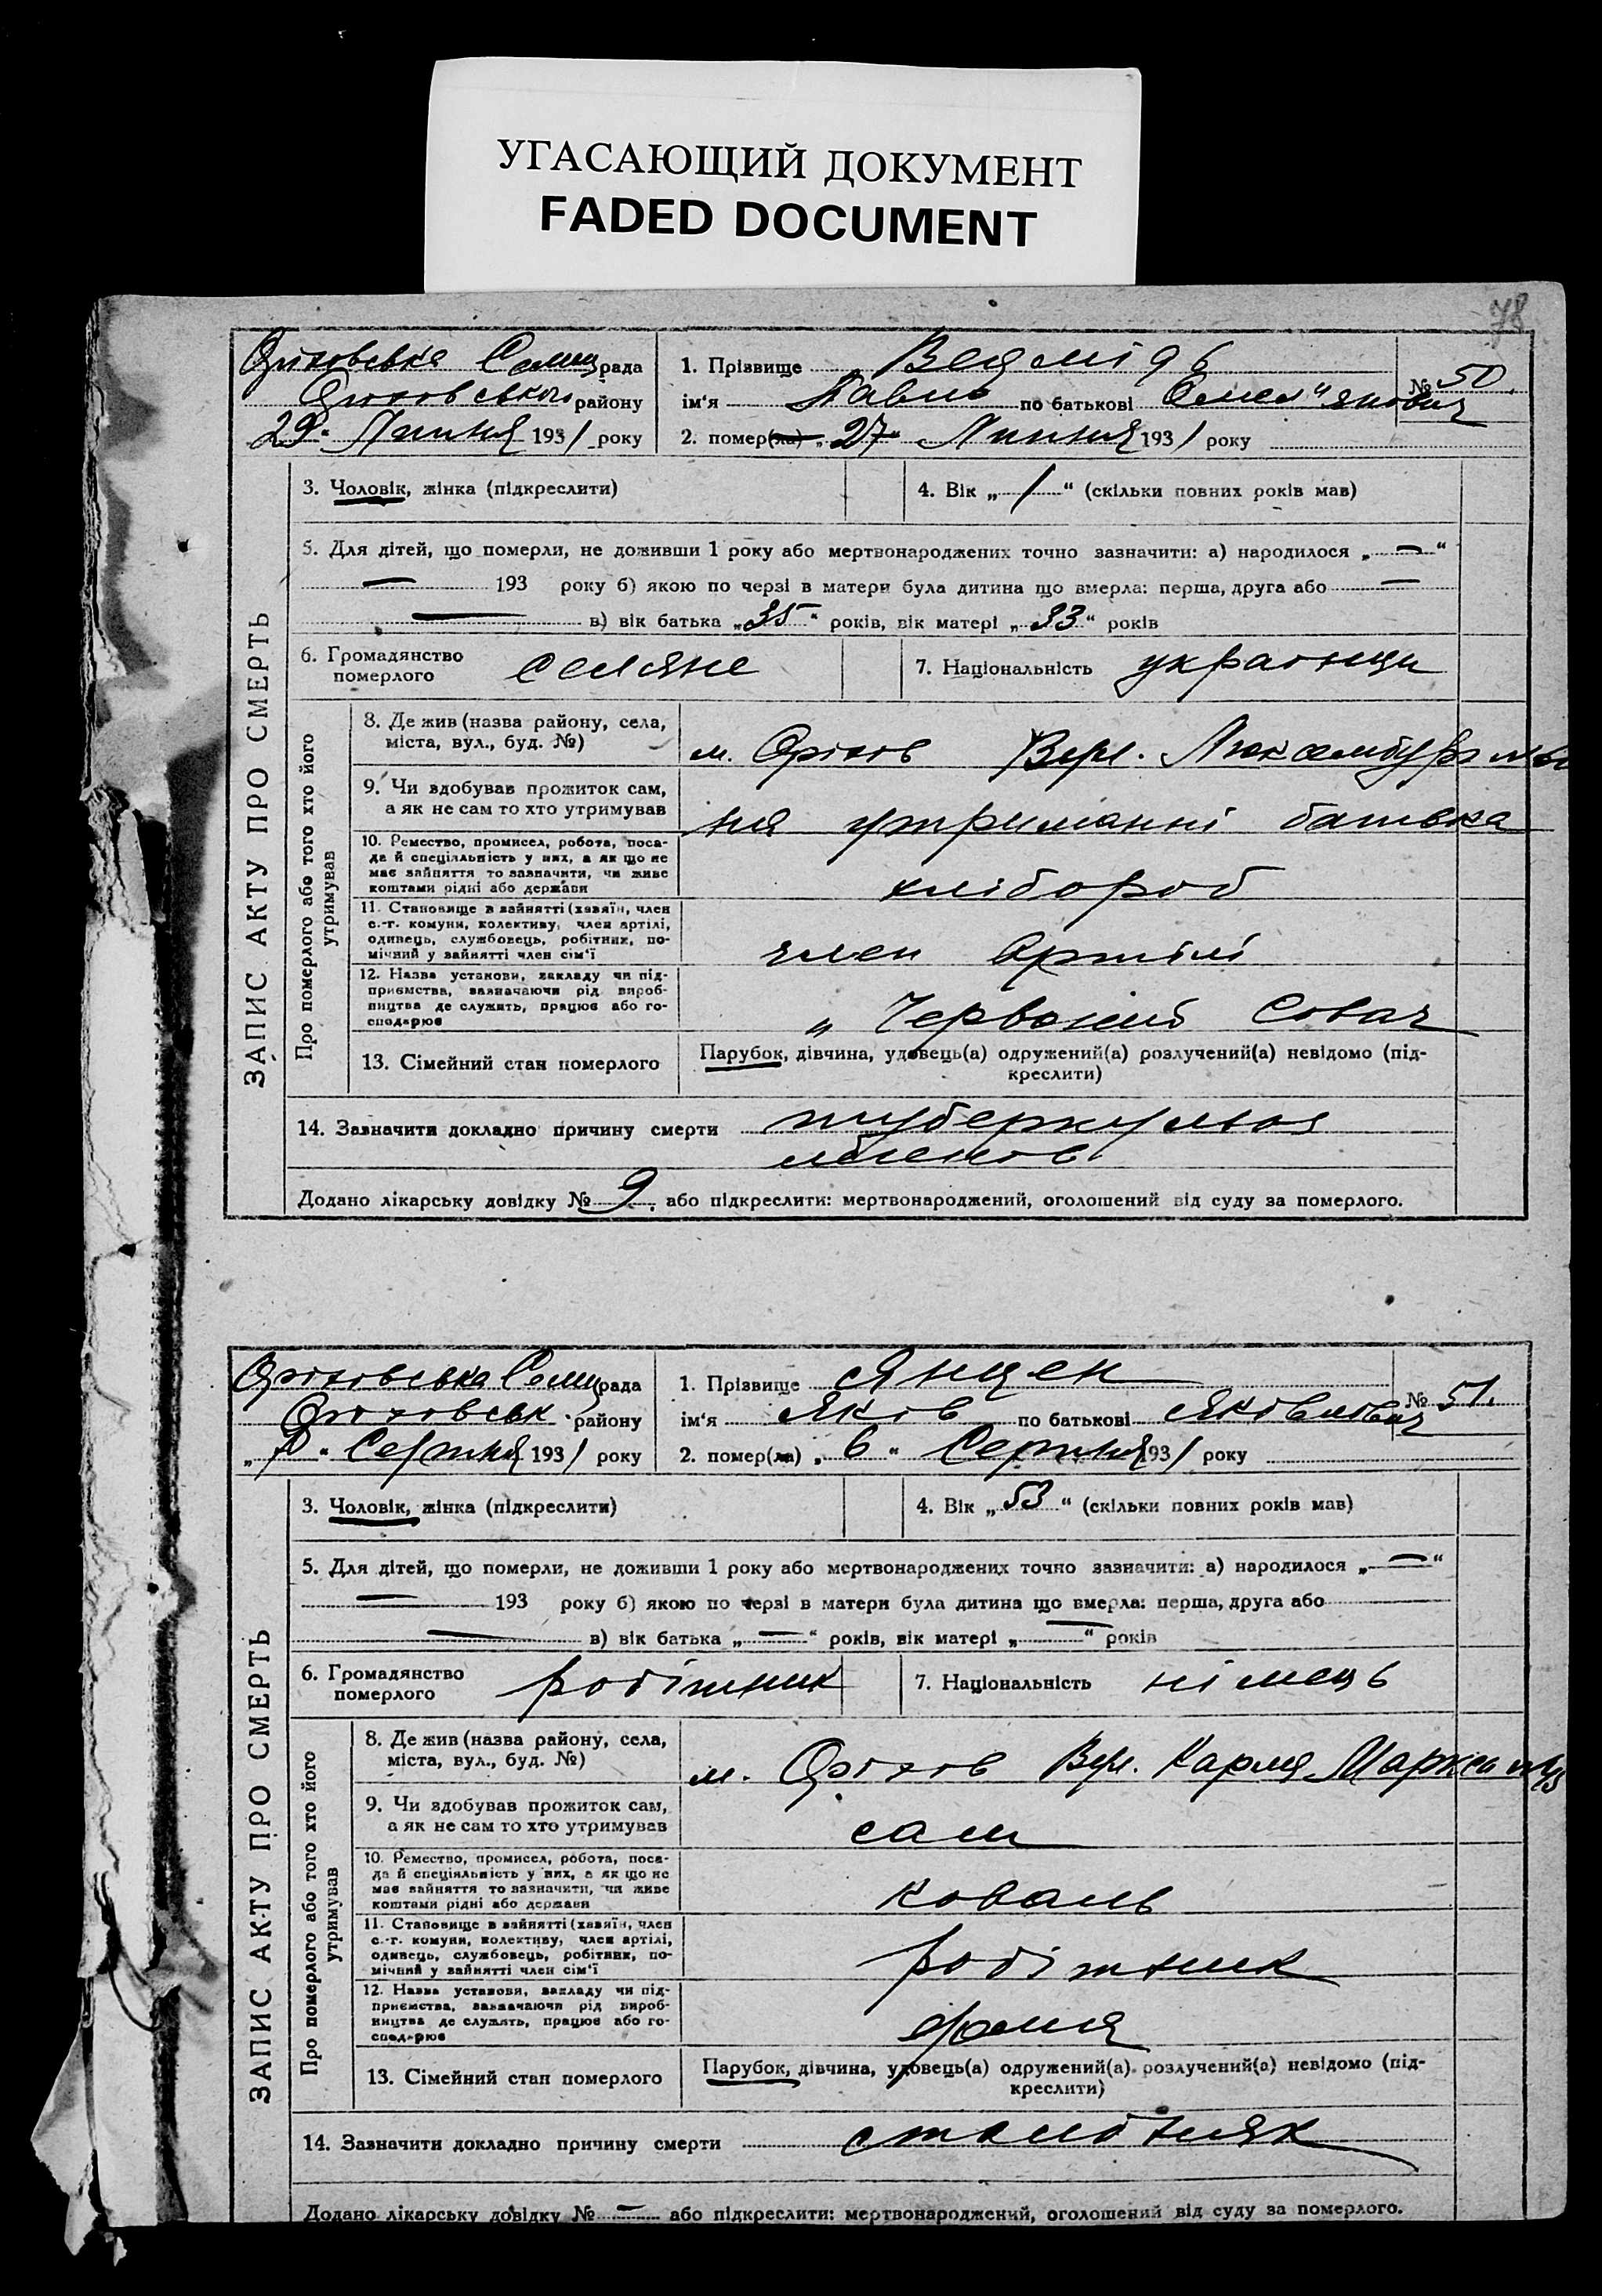 УГАСАЮЩИЙ ДОКУМЕНТ
FADED DOCUMENT
78
Оріховська Селищ рада
Оріховського району
29 " Липня 1931 року
1. Прізвище Ведмідь
№ 50.
ім'я Павло по батькові Омел"янович
2. помер(ла) „ 27 " Липня 1931 року
3. Чоловік, жінка (підкреслити)
4. Вік „ 1 " (скільки повних років мав)
5. Для дітей, що померли, не доживши 1 року або мертвонароджених точно зазначити: а) народилося „ — "
— 193 року б) якою по черзі в матери була дитина що вмерла: перша, друга або —
— в) вік батька „ 35 " років, вік матері „ 33 " років
6. Громадянство померлого селяне
7. Національність українци
ЗАПИС АКТУ ПРО СМЕРТЬ
Про померлого або того хто його утримував
8. Де жив (назва району, села,
міста, вул., буд. №)
м. Оріхов Вул. Люксембург
9. Чи здобував прожиток сам,
а як не сам то хто утримував
на утриманні батька
10. Ремество, промисел, робота, поса-
да й спеціяльність у них, а як що не
має зайняття то зазначити, чи живе
коштами рідні або держави
хлібороб
11. Становище в зайнятті (хазяїн, член
с.-г. комуни, колективу, член артілі,
одинець, службовець, робітник, по-
мічний у зайнятті член сім'ї
член Артілі
12. Назва установи, закладу чи під-
приємства, зазначаючи рід вироб-
ництва де служить, працює або го-
сподарює
„ Червоний
13. Сімейний стан померлого
Парубок, дівчина, удовець(а) одружений(а) розлучений(а) невідомо (під-
креслити)
14. Зазначити докладно причину смерти туберкульоз
легенов
Додано лікарську довідку № 9 або підкреслити: мертвонароджений, оголошений від суду за померлого.
Оріховська Селищ рада
Оріховськ. району
" Серпня 1931 року
1. Прізвище Янцен
№ 51.
ім'я Яков по батькові Яковлович
2. помер(ла) „ 6 " Серпня 1931 року
3. Чоловік, жінка (підкреслити)
4. Вік „ 53 " (скільки повних років мав)
5. Для дітей, що померли, не доживши 1 року або мертвонароджених точно зазначити: а) народилося „ — "
— 193 року б) якою по черзі в матери була дитина що вмерла: перша, друга або
— в) вік батька „ — " років, вік матері „ — " років
6. Громадянство померлого робітник
7. Національність німець
ЗАПИС АКТУ ПРО СМЕРТЬ
Про померлого або того хто його утримував
8. Де жив (назва району, села,
міста, вул., буд. №)
м. Оріхов Вул. Карла Маркса
9. Чи здобував прожиток сам,
а як не сам то хто утримував
сам
10. Ремество, промисел, робота, поса-
да й спеціяльність у них, а як що не
має зайняття то зазначити, чи живе
коштами рідні або держави
коваль
11. Становище в зайнятті (хазяїн, член
с.-г. комуни, колективу, член артілі,
одинець, службовець, робітник, по-
мічний у зайнятті член сім'ї
робітник
12. Назва установи, закладу чи під-
приємства, зазначаючи рід вироб-
ництва де служить, працює або го-
сподарює
13. Сімейний стан померлого
Парубок, дівчина, удовець(а) одружений(а) розлучений(а) невідомо (під-
креслити)
14. Зазначити докладно причину смерти столбняк
Додано лікарську довідку № — або підкреслити: мертвонароджений, оголошений від суду за померлого.